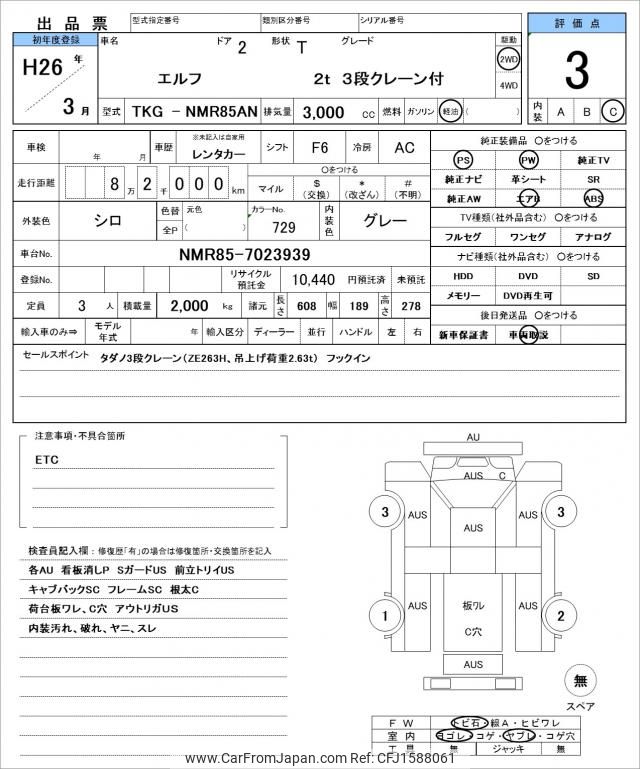 出品票 型式指定番号 類別区分番号 シリアル番号
評価点
初年度登録 車名 ドア 2 形状 T グレード 駆動
H26 年 エルフ 2t 3段クレーン付 2WD 3
4WD
3 月 型式 TKG - NMR85AN 排気量 3,000 CC 燃料 ガソリン 軽油 ( ) 内装 A B C
車検 年 月 車歴 ※未記入は自家用 レンタカー シフト F6 冷房 AC
純正装備品 〇をつける
PS PW 純正TV
走行距離 8 万 2 千 0 0 0 km 〇をつける
マイル $ (交換) * (改ざん) # (不明)
純正ナビ 革シート SR
純正AW エアB ABS
外装色 シロ 色替 元色 全P ( ) カラーNo. 729 内装色 グレー
TV種類(社外品含む) 〇をつける
フルセグ ワンセグ アナログ
車台No. NMR85-7023939
ナビ種類(社外品含む) 〇をつける
登録No. リサイクル預託金 10,440 円預託済 未預託
HDD DVD SD
メモリー DVD再生可
定員 3 人 積載量 2,000 kg 諸元 長さ 608 幅 189 高さ 278
後日発送品 〇をつける
輸入車のみ⇒ モデル年式 年 輸入区分 ディーラー 並行 ハンドル 左 右
新車保証書 車両取説
セールスポイント タダノ3段クレーン(ZE263H、吊上げ荷重2.63t) フックイン
注意事項・不具合箇所
ETC
検査員記入欄：修復歴「有」の場合は修復箇所・交換箇所を記入
各AU 看板消しP SガードUS 前立トリイUS
キャブバックSC フレームSC 根太C
荷台板ワレ、C穴 アウトリガUS
内装汚れ、破れ、ヤニ、スレ
AU
AUS C
3 AUS AUS AUS 3
1 AUS 板ワレ AUS 2
C穴
AUS
無
スペア
FW トビ石・線A・ヒビワレ
室内 ヨゴレ・コゲ・ヤブレ・コゲ穴
工具 無 ジャッキ 無
www.CarFromJapan.com Ref: CFJ1588061